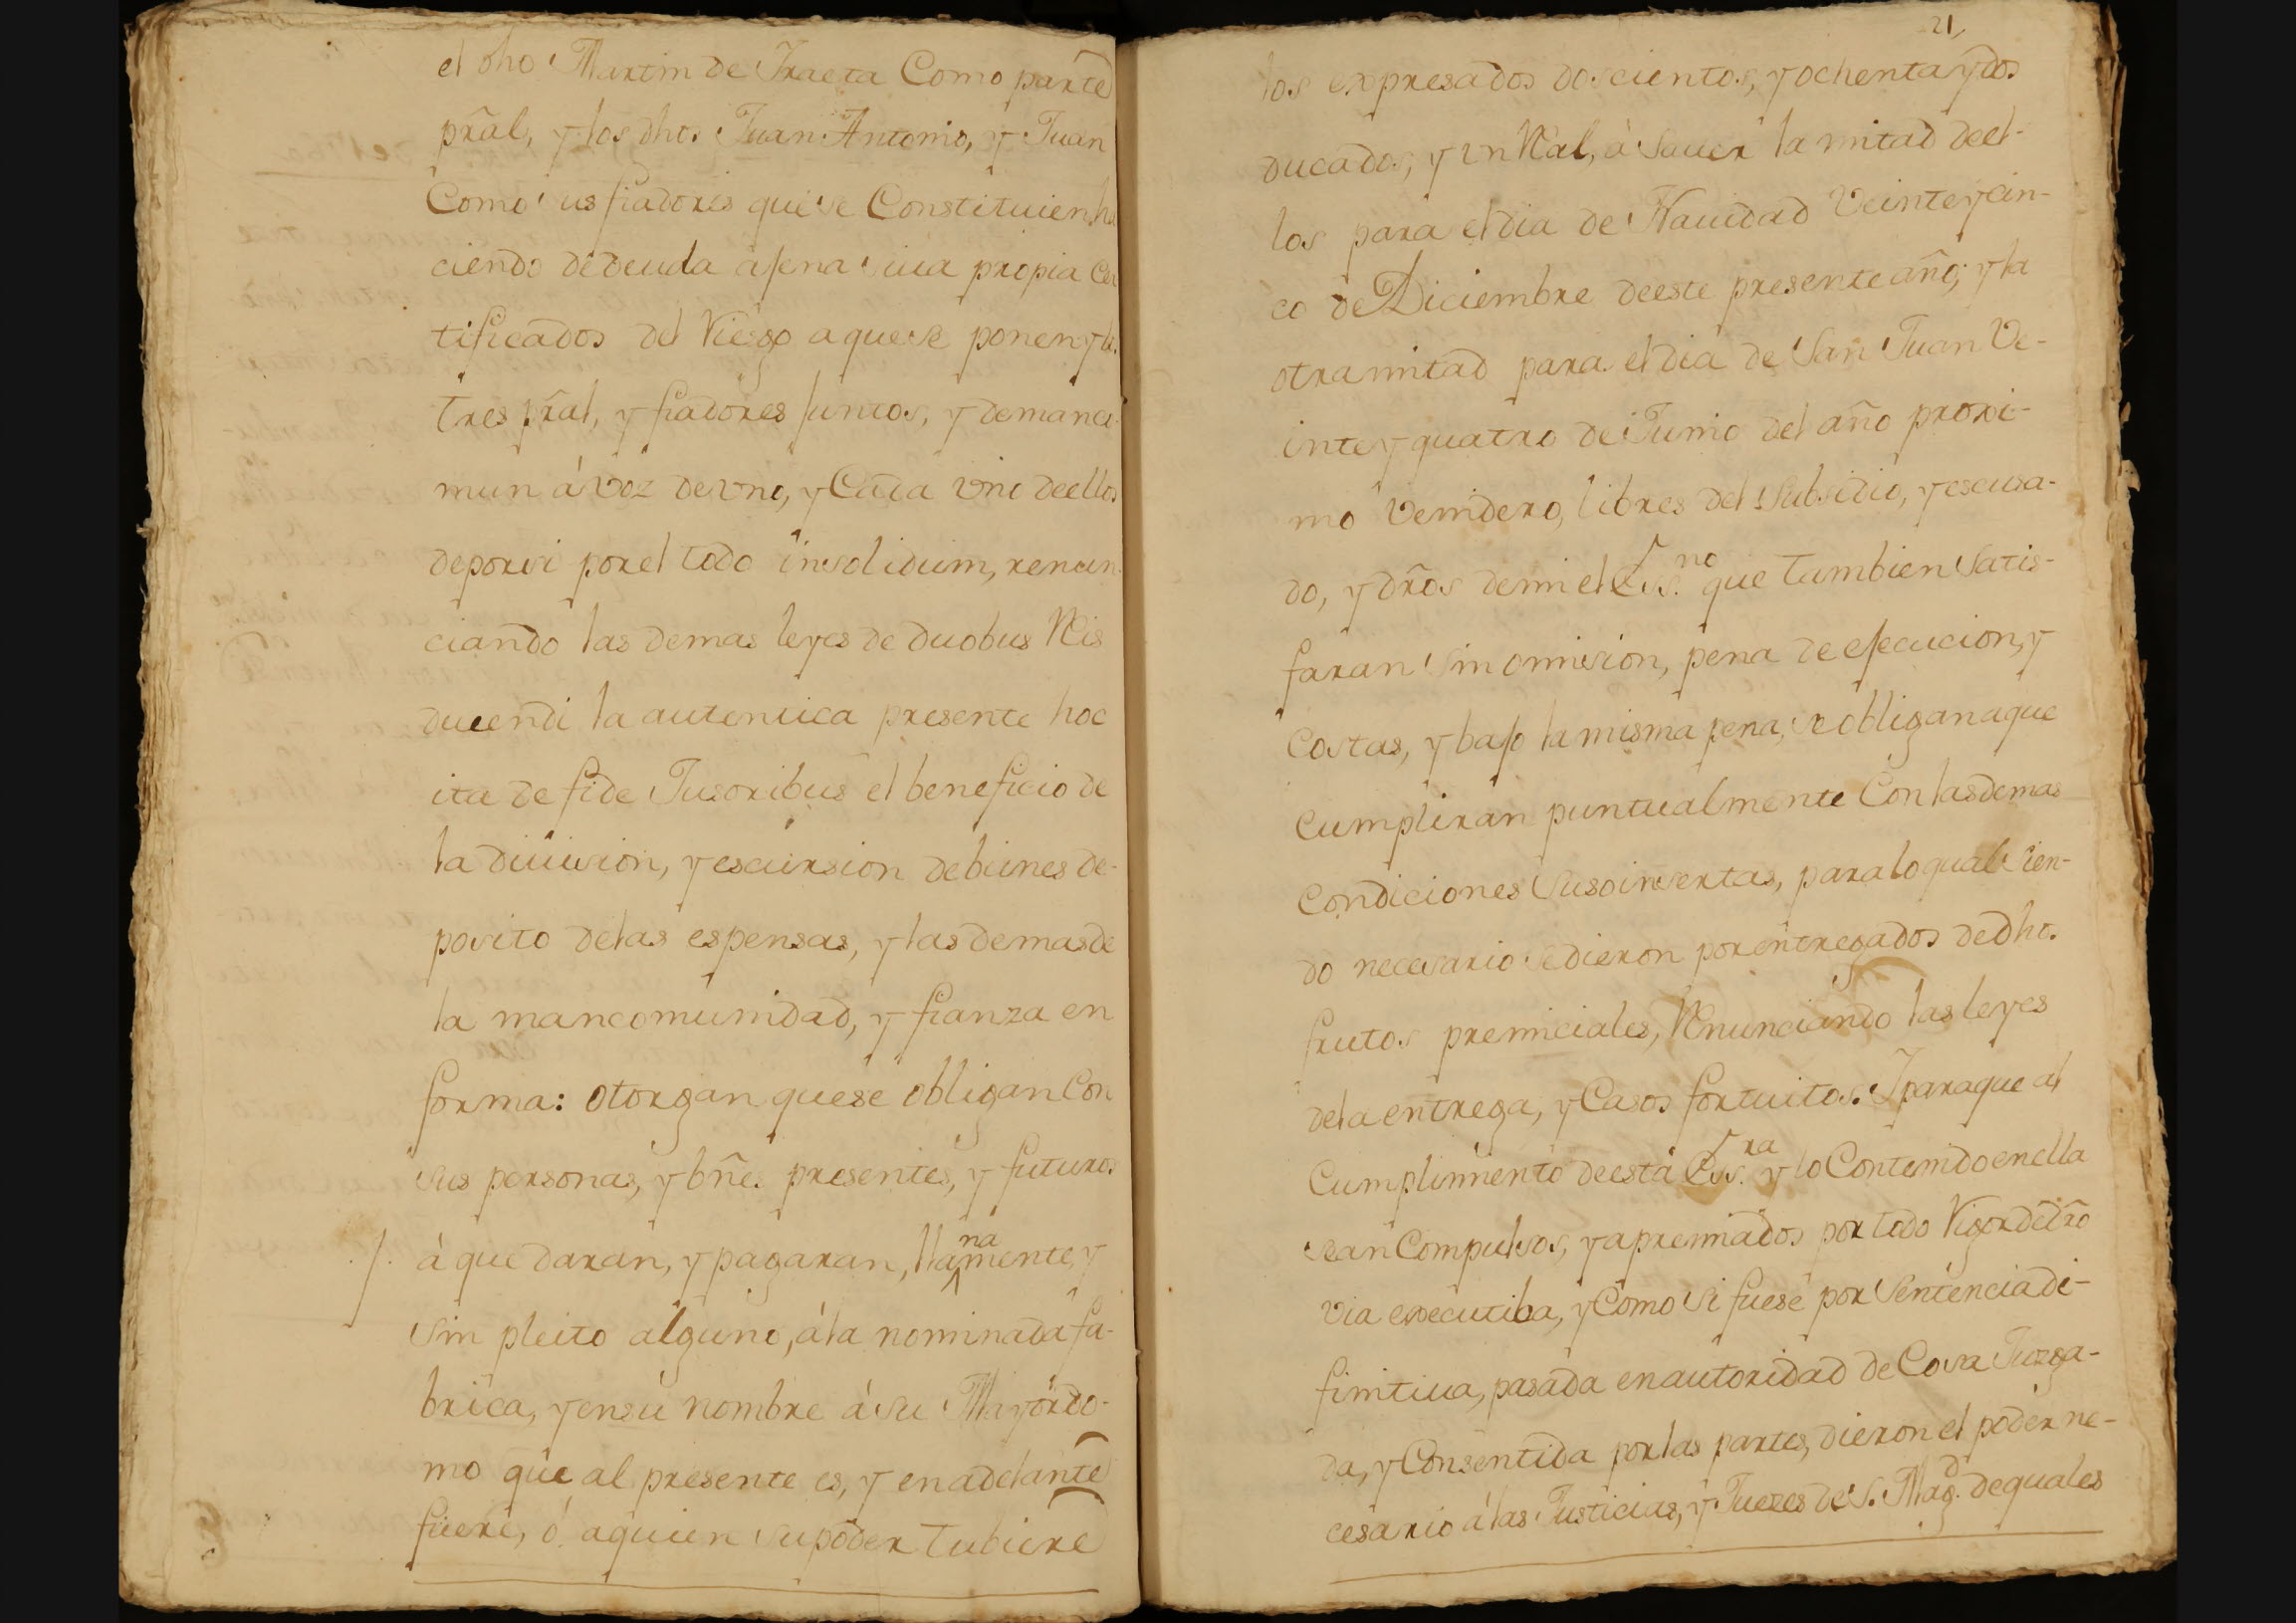 el dho Martin de Traeta Como parte
pral, y los dhos Juan Antonio, y Juan
Como sus fiadores que se Constituien ha
ciendo de deuda ajena suia propia Cer
tificados del Riesgo a que se ponen y los
tres pral, y fiadores juntos, y de manco
mun á voz de vno, y Cada vno de ellos
de por si por el todo in solidum, renun
ciando las demas leyes de duobus Reis
duendi la autentica presente hoc
ita de fide Jusoribus el beneficio de
la diuision, y escursion de bienes de-
posito de las espensas, y las demas de
la mancomunidad, y fianza en
forma: otorgan que se obligan Con
sus personas, y bñes presentes, y futuros
á que daran, y pagaran, llanamente, y
sin pleito alguno, á la nominada fa-
brica, y en su nombre á su Mayordo-
mo que al presente es, y en adelante
fuere, ó a quien su poder tubiere
21
los expresados doscientos, y ochenta y dos
ducados, y vn Rl, à sauer la mitad de el-
los para el dia de Nauidad Veinte y cin-
co de Diciembre de este presente año; y la
otra mitad para el dia de San Juan Ve-
inte y quatro de Junio del año proxi-
mo venidero, libres del Subsidio, y escusa-
do, y dros de mi el Ess.no que tambien satis-
faran sin omision, pena de ejecucion, y
Costas, y bajo la misma pena, se obligan a que
Cumpliran puntualmente Con las demas
Condiciones suso insertas, para lo qual sien-
do necesario se dieron por entregados de dhos
frutos premiciales, Renunciando las leyes
de la entrega, y Casos fortuitos. I para que al
Cumplimiento de esta Ess.ra y lo Contenido en ella
sean Compulsos, y apremiados por todo Rigor de dro
via executiba, y Como si fuese por Sentencia di-
finitiua, pasada en autoridad de Cosa Juzga-
da, y Consentida por las partes, dieron el poder ne-
cesario á las Justicias, y Juezes de S. Mag.d de quales